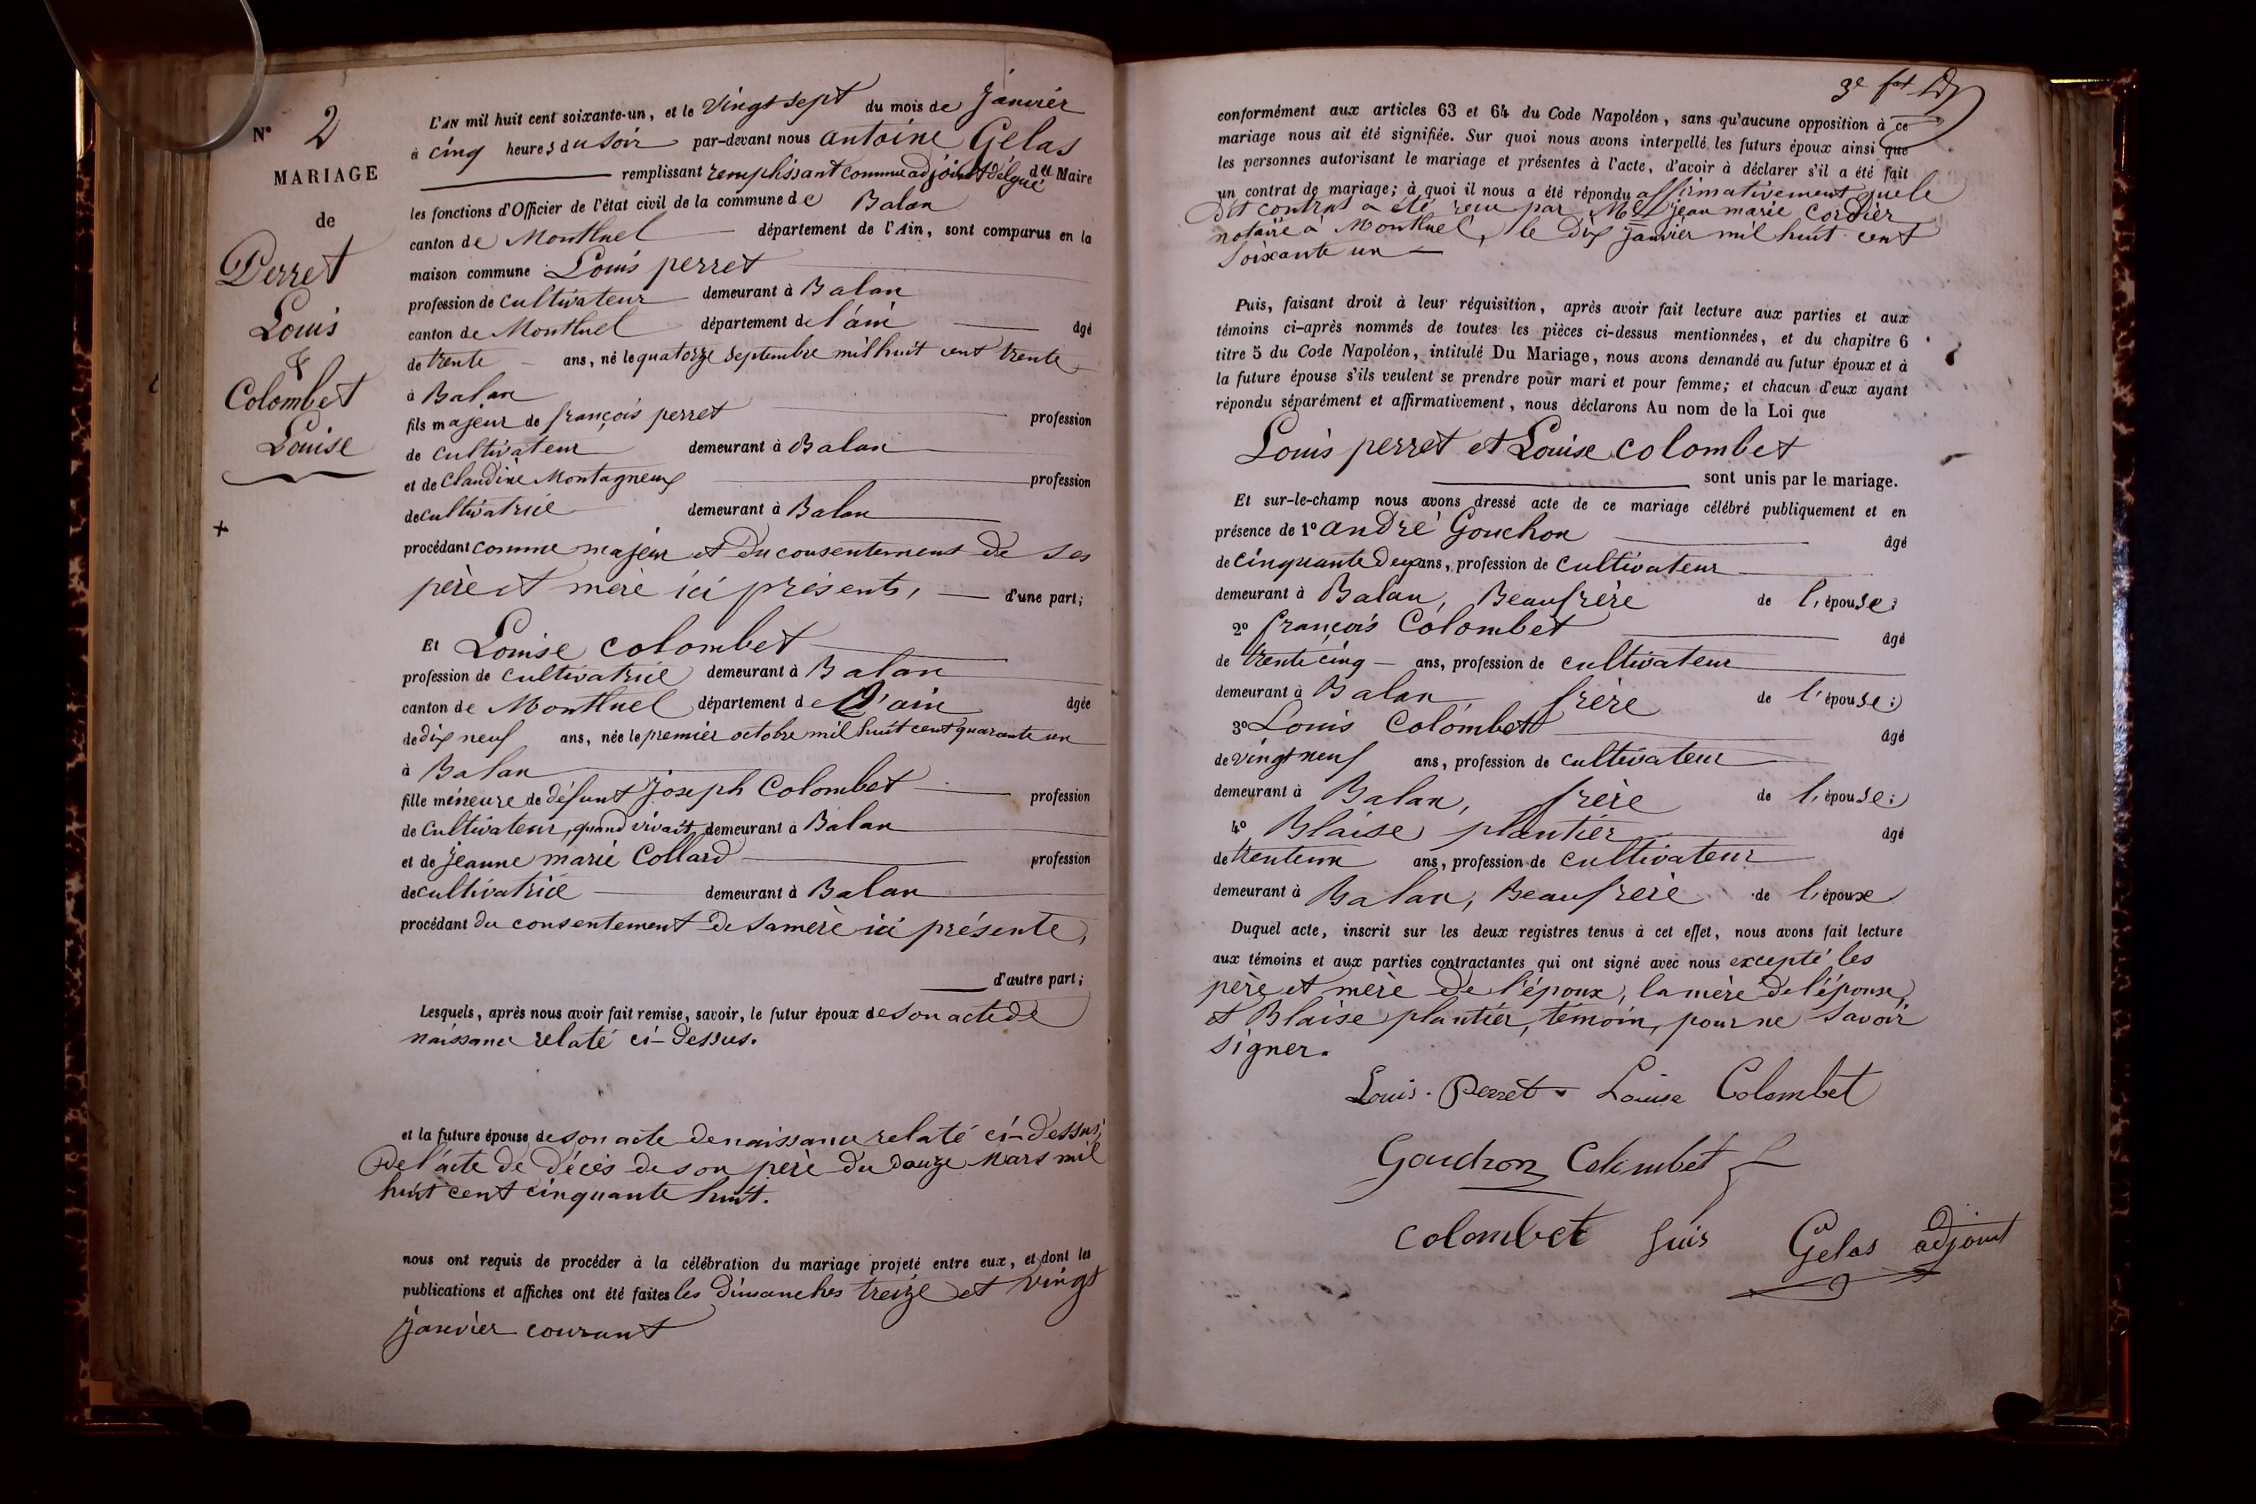 N° 2
MARIAGE
de
Perret
Louis
&
Colombet
Louise
L'AN mil huit cent soixante-un, et le vingt sept du mois de janvier
à cinq heures du soir par-devant nous antoine Gelas
remplissant remplissant comme adjoint délégué du Maire
les fonctions d'Officier de l'état civil de la commune de Balan
canton de Montluel département de l'Ain, sont comparus en la
maison commune Louis perret
profession de cultivateur demeurant à Balan
canton de Montluel département de l'ain âgé
de trente ans, né le quatorze septembre mil huit cent trente
à Balan
fils majeur de françois perret profession
de cultivateur demeurant à Balan
et de Claudine Montagneux profession
de cultivatrice demeurant à Balan
procédant comme majeur et du consentement de ses
père et mère ici présents, d'une part;
Et Louise colombet
profession de cultivatrice demeurant à Balan
canton de Montluel département de l'ain âgée
de dix neuf ans, née le premier octobre mil huit cent quarante un
à Balan
fille mineure de défunt Joseph Colombet profession
de cultivateur, quand vivait, demeurant à Balan
et de jeanne marie Collard profession
de cultivatrice demeurant à Balan
procédant du consentement de sa mère ici présente,
d'autre part;
Lesquels, après nous avoir fait remise, savoir, le futur époux de son acte de
naissance relaté ci-dessus.
et la future épouse de son acte de naissance relaté ci-dessus,
de l'acte de décès de son père du douze Mars mil
huit cent cinquante huit.
nous ont requis de procéder à la célébration du mariage projeté entre eux, et dont les
publications et affiches ont été faites les dimanches treize et vingt
janvier courant
3e
conformément aux articles 63 et 64 du Code Napoléon, sans qu'aucune opposition à ce
mariage nous ait été signifiée. Sur quoi nous avons interpellé les futurs époux ainsi que
les personnes autorisant le mariage et présentes à l'acte, d'avoir à déclarer s'il a été fait
un contrat de mariage; à quoi il nous a été répondu affirmativement que le
dit contrat a été reçu par Me jean marie cordier
notaire à Montluel, le dix janvier mil huit cent
soixante un
Puis, faisant droit à leur réquisition, après avoir fait lecture aux parties et aux
témoins ci-après nommés de toutes les pièces ci-dessus mentionnées, et du chapitre 6
titre 5 du Code Napoléon, intitulé Du Mariage, nous avons demandé au futur époux et à
la future épouse s'ils veulent se prendre pour mari et pour femme; et chacun d'eux ayant
répondu séparément et affirmativement, nous déclarons Au nom de la Loi que
Louis perret et Louise colombet
sont unis par le mariage.
Et sur-le-champ nous avons dressé acte de ce mariage célébré publiquement et en
présence de 1° andré Gouchon âgé
de cinquante deux ans, profession de cultivateur
demeurant à Balan, Beaufrère de l'épouse;
2° françois Colombet âgé
de trente cinq ans, profession de cultivateur
demeurant à Balan, frère de l'épouse;
3° Louis Colombet âgé
de vingt neuf ans, profession de cultivateur
demeurant à Balan, frère de l'épouse;
4° Blaise plantier âgé
de trente un ans, profession de cultivateur
demeurant à Balan, Beaufrère de l'époux
Duquel acte, inscrit sur les deux registres tenus à cet effet, nous avons fait lecture
aux témoins et aux parties contractantes qui ont signé avec nous excepté les
père et mère de l'époux, la mère de l'épouse,
et Blaise plantier, témoin, pour ne savoir
signer.
Louis Perret Louise Colombet
Gouchon Colombet f
colombet Luis Gelas adjoint